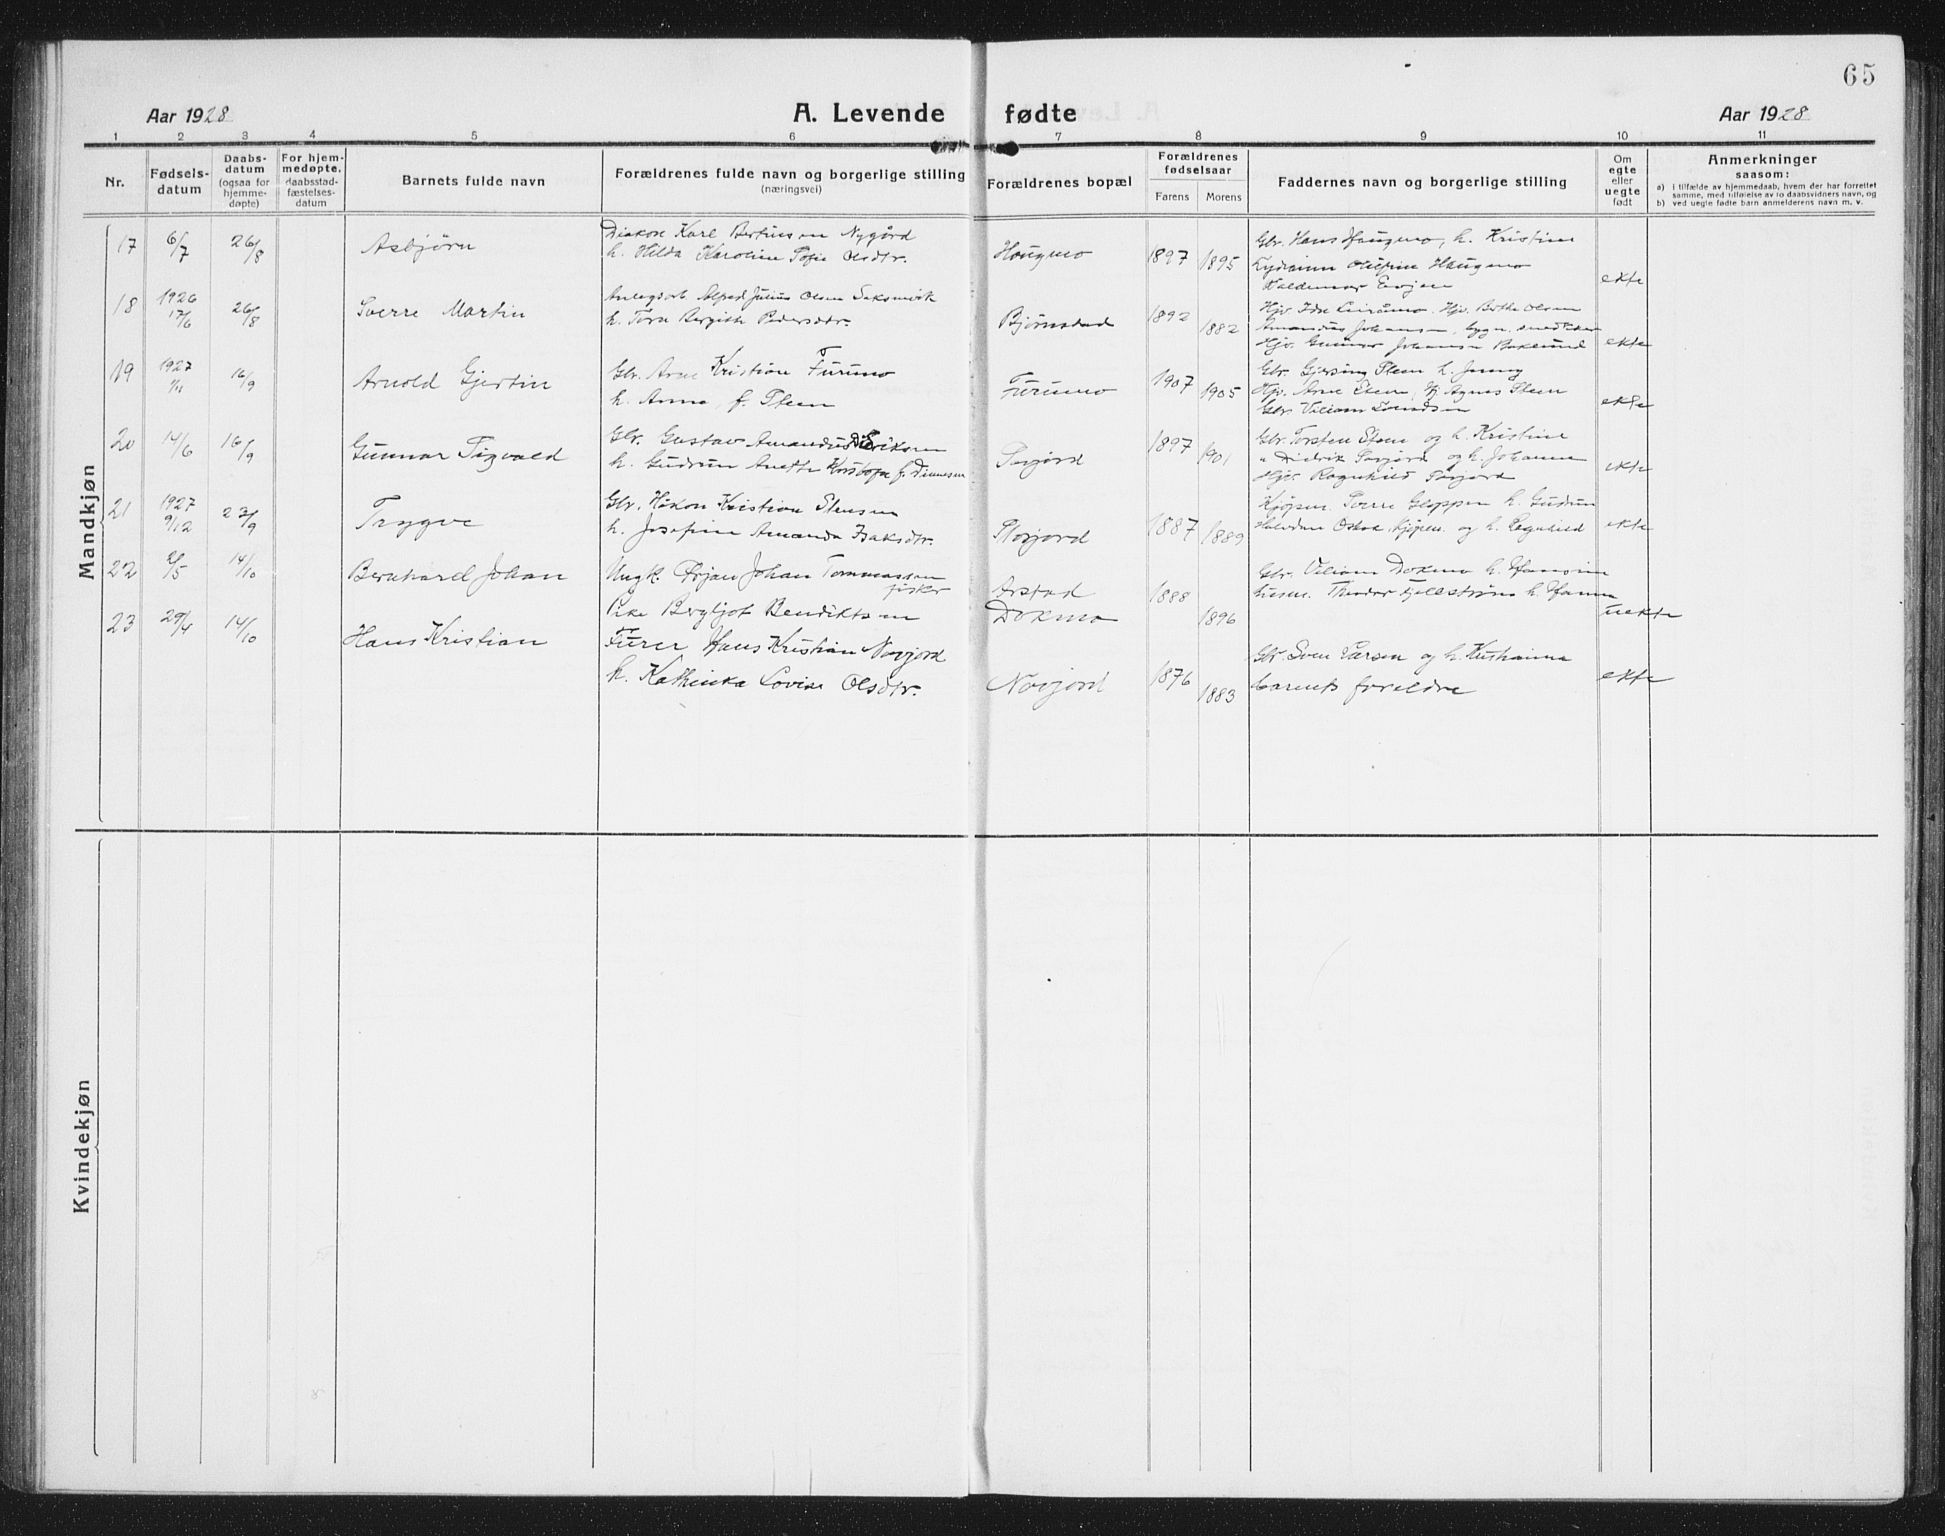 65
Aar 1928
A. Levende fødte
Aar 1928
1 2 3 4 5 6 7 8 9 10 11
Nr.
Fødsels-
datum
Daabs-
datum
(ogsaa for
hjemme-
døpte)
For hjem-
medøpte.
daabsstad-
fæstelses-
datum
Barnets fulde navn
Forældrenes fulde navn og borgerlige stilling
(næringsvei)
Forældrenes bopæl
Forældrenes
fødselsaar
Farens Morens
Faddernes navn og borgerlige stilling
Om
egte
eller
uegte
født
Anmerkninger
saasom:
a) i tilfælde av hjemmedaab, hvem der har forrettet
samme, med tilføielse av to daabsvidners navn, og
b) ved uegte fødte barn anmelderens navn m. v.
Mandkjøn
17 6/7 26/8 Asbjørn
Diakon Karl Bertinsen Nygård
h. Hilda Karoline Sofie Olsdtr.
Haugmo 1897 1895
Gbr. Hans Haugmo, h. Kristine
Haugmo
ekte
18 1926 17/6 26/8 Sverre Martin
Anlegsarb. Alfred Julius Olsen Saksenvik
h. Tora Bergithe Pedersdtr.
Bjørnstad 1892 1882
Hjv. Berthe Olsen
Amandus Johansen, bygn. smed
Hjv. Gunnar Johansen
ekte
19 1927 1/11 16/9 Arnold Gjertin
Gbr. Arne Kristian Furumo
h. Anna, f. Steen
Furumo 1907 1905
Gbr. Steen h. Jenny
Hjv. Arne Steen, Hj. Agnes Steen
Gbr. Viliam
ekte
20 14/6 16/9 Gunnar Sigvald
Gbr. Gustav Amandus Diderikson
h. Gudrun Anette f. Dinesen
Storjord 1897 1901
Gbr. Torsten Steen og h. Kristine
" Didrik Storjord og h. Johanna
Hjv. Ragnhild Storjord
ekte
21 1927 9/12 23/9 Trygve
Gbr. Håkon Kristian Stensen
h. Josefine Amanda Isaksdtr.
Storjord 1887 1889
Kjøpm. Sverre Gloppen h. Gudrun
kjøpm. og h. Ragnhild
ekte
22 2/5 14/10 Bernhard Johan
Ungk. Ørjan Johan Tommassen
fisker
Pike Bergljot Bendiktsen
Arstad
Dokmo
1888 1896
Gbr. Viliam Dokmo h. Hansine
Theodor Fjellstrøm h. Hanna
uekte
23 29/4 14/10 Hans Kristian
Fører Hans Kristian Novjord
h. Kathinka Lovise Olsdtr.
Novjord 1876 1883
Gbr. Sven Larsen og h. Kristianna
barnets foreldre
ekte
Kvindekjøn